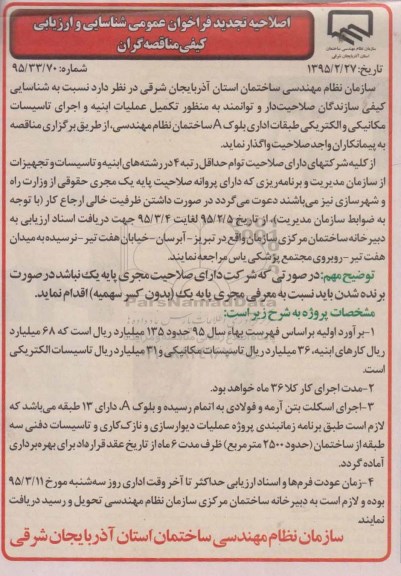 اصلاحیه تجدید فراخوان عمومی شناسایی و ارزیابی
کیفی مناقصه‌گران
سازمان نظام مهندسی ساختمان
استان آذربایجان شرقی
تاریخ: ۱۳۹۵/۲/۲۷
شماره: ۹۵/۳۳/۷۰
سازمان نظام مهندسی ساختمان استان آذربایجان شرقی در نظر دارد نسبت به شناسایی
کیفی سازندگان صلاحیت‌دار و توانمند به منظور تکمیل عملیات ابنیه و اجرای تاسیسات
مکانیکی و الکتریکی طبقات اداری بلوک A ساختمان نظام مهندسی، از طریق برگزاری مناقصه
به پیمانکاران واجد صلاحیت واگذار نماید.
از کلیه شرکتهای دارای صلاحیت توام حداقل رتبه ۴ در رشته‌های ابنیه و تاسیسات و تجهیزات
از سازمان مدیریت و برنامه‌ریزی که دارای پروانه صلاحیت پایه یک مجری حقوقی از وزارت راه
و شهرسازی نیز می‌باشند دعوت می‌گردد در صورت داشتن ظرفیت خالی ارجاع کار (با توجه
به ضوابط سازمان مدیریت) از تاریخ ۹۵/۲/۵ لغایت ۹۵/۳/۴ جهت دریافت اسناد ارزیابی به
دبیرخانه ساختمان مرکزی سازمان واقع در تبریز - آبرسان - خیابان هفت تیر - نرسیده به میدان
هفت تیر - روبروی مجتمع پزشکی یاس مراجعه نمایند.
توضیح مهم: در صورتی که شرکت دارای صلاحیت مجری پایه یک نباشد در صورت
برنده شدن باید نسبت به معرفی مجری پایه یک (بدون کسر سهمیه) اقدام نماید.
مشخصات پروژه به شرح زیر است:
۱- برآورد اولیه براساس فهرست بهاء سال ۹۵ حدود ۱۳۵ میلیارد ریال است که ۶۸ میلیارد
ریال کارهای ابنیه، ۳۶ میلیارد ریال تاسیسات مکانیکی و ۳۱ میلیارد ریال تاسیسات الکتریکی
است.
۲- مدت اجرای کار کلا ۳۶ ماه خواهد بود.
۳- اجرای اسکلت بتن آرمه و فولادی به اتمام رسیده و بلوک A، دارای ۱۳ طبقه می‌باشد که
لازم است طبق برنامه زمانبندی پروژه عملیات دیوارسازی و نازک‌کاری و تاسیسات دفنی سه
طبقه از ساختمان (حدود ۲۵۰۰ متر مربع) ظرف مدت ۶ ماه از تاریخ عقد قرارداد برای بهره‌برداری
آماده گردد.
۴- زمان عودت فرم‌ها و اسناد ارزیابی حداکثر تا آخر وقت اداری روز سه‌شنبه مورخ ۹۵/۳/۱۱
بوده و لازم است به دبیرخانه ساختمان مرکزی سازمان نظام مهندسی تحویل و رسید دریافت
نمایند.
سازمان نظام مهندسی ساختمان استان آذربایجان شرقی